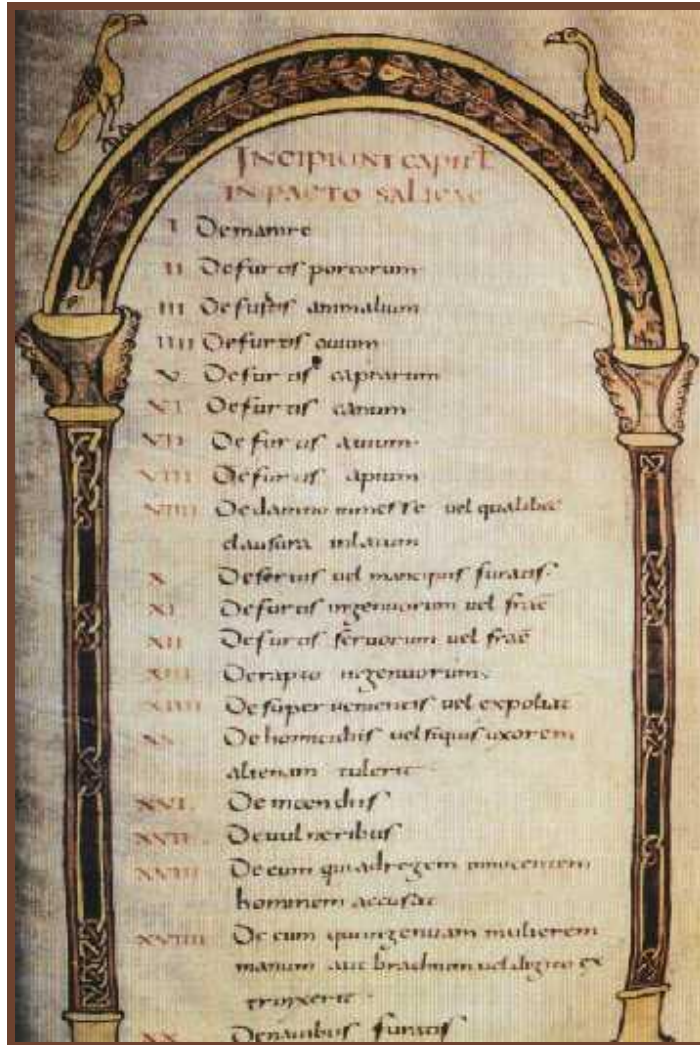 INCIPIUNT CAPITL
IN PACTO SALICAE
I Demanire
II Defurtis porcorum
III Defurtis animalium
IIII Defurtis ouium
V Defurtis caprarum
VI Defurtis canum
VII Defurtis auium
VIII Defurtis apium
VIIII Dedamno inmesse uel qualibec
clausura inlatum
X Deseruis uel mancipiis furatis
XI Defurtis ingenuorum uel frac
XII Defurtis seruorum uel frac
XIII Derapto ingenuorum
XIIII Desuper uenientis uel expoliat
XV Dehomicidiis uelsiquis uxorem
alienam tulerit
XVI. Deincendiis
XVII. Deuulneribus
XVIII Deeum quiadregem innocentem
hominem accusat
XVIIII De eum quiingenuam mulierem
manum aut brachium uel digito ex
trinxerit
XX Denauibus furatis